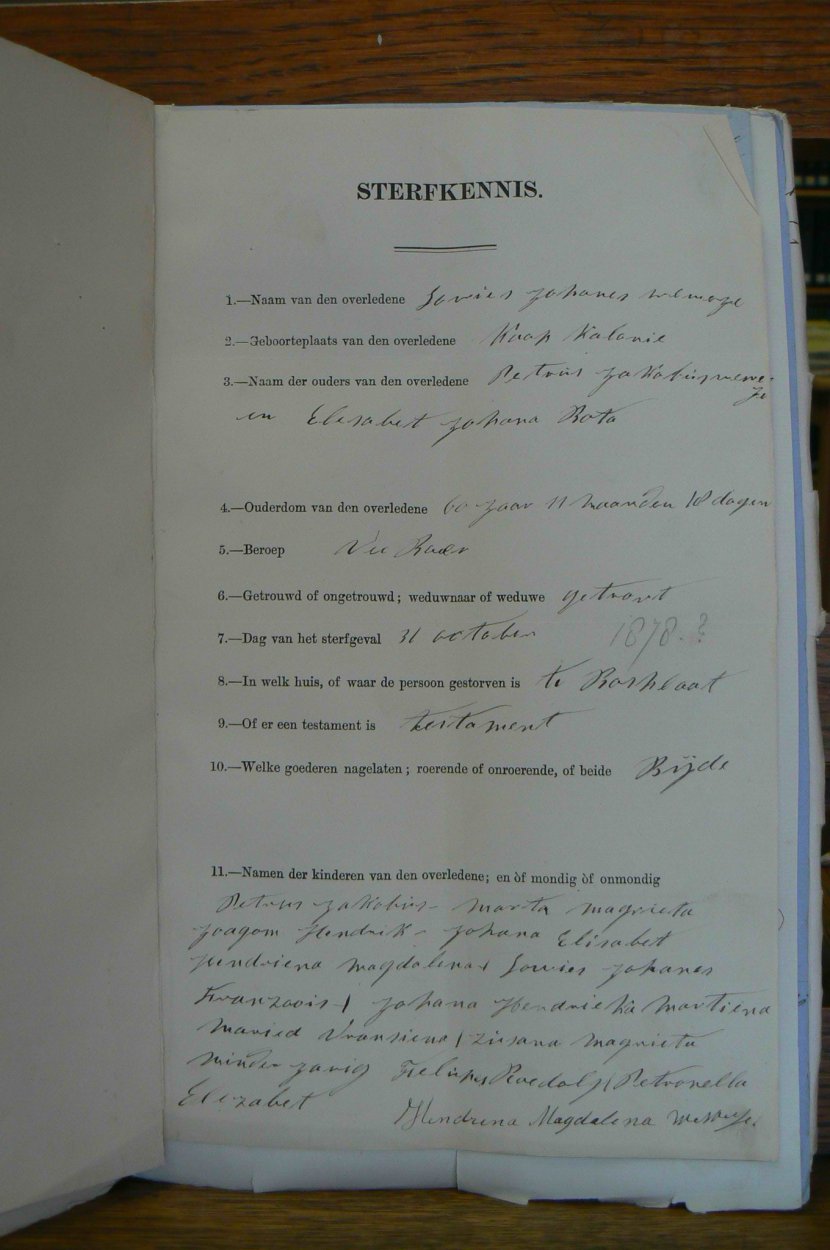 STERFKENNIS.
1.—Naam van den overledene Lowies Johanes
2.—Geboorteplaats van den overledene Kaap Kalonie
3.—Naam der ouders van den overledene Petrus Jakobus
en Elesabet Johana Bota
4.—Ouderdom van den overledene 60 Jaar 11 maanden 18 dagen
5.—Beroep Vee Boer
6.—Getrouwd of ongetrouwd; weduwnaar of weduwe getrout
7.—Dag van het sterfgeval 31 october 1878.?
8.—In welk huis, of waar de persoon gestorven is te
9.—Of er een testament is testament
10.—Welke goederen nagelaten; roerende of onroerende, of beide Bijde
11.—Namen der kinderen van den overledene; en òf mondig òf onmondig
Petrus Jakobus - Marta Magrieta
Joagom Hendrik - Johana Elisabet
Hendriena Magdalena / Lowies Johanes
Franzoois / Johana Hendrieka Martiena
Maried Vransiena / Zusana Magrieta
minder jarig Roedolf / Petronella
Elezabet
Hendrina Magdalena